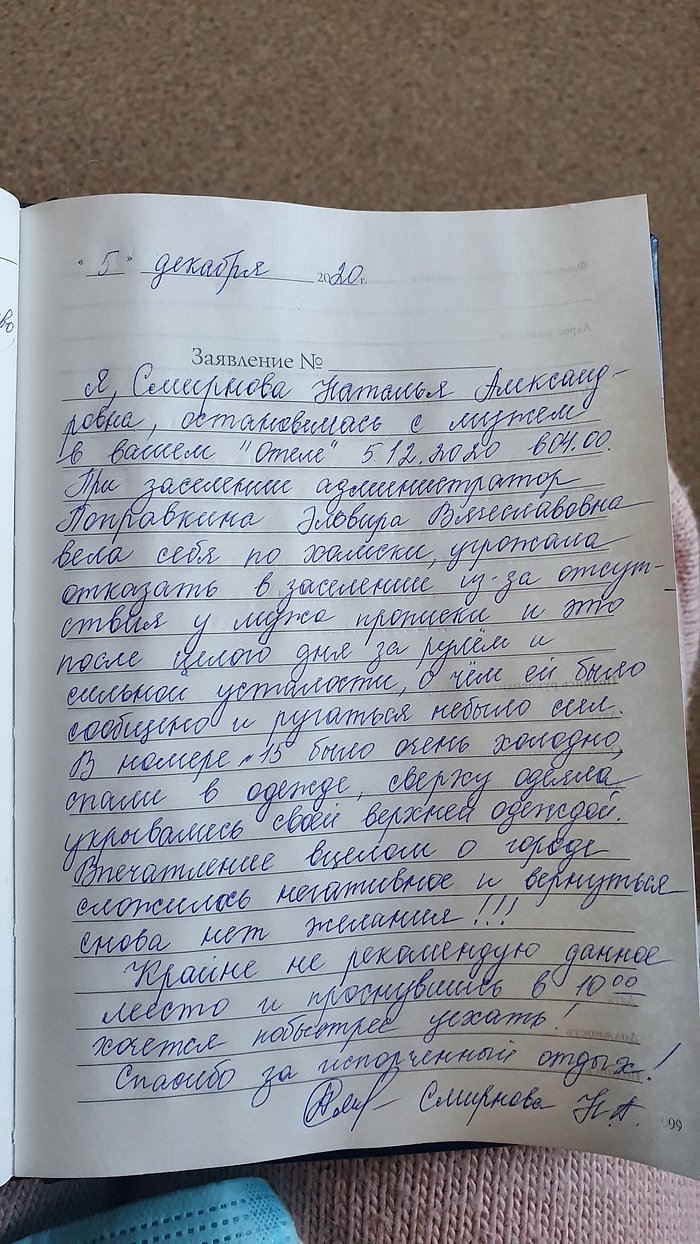 « 5 » декабря 2020 г.
Заявление № 
Я, Смирнова Наталья Александ-
ровна, остановилась с мужем
в вашем "Отеле" 5.12.2020 в 04.00.
При заселении администратор
Поправкина Эльвира Вячеславовна
вела себя по хамски, угрожала
отказать в заселении из-за отсут-
ствия у мужа прописки и это
после целого дня за рулём и
сильной усталости, о чём ей было
сообщено и ругаться небыло сил.
В номере №15 было очень холодно,
спали в одежде, сверху одеяла
укрывались своей верхней одеждой.
Впечатление вцелом о городе
сложилось негативное и вернуться
снова нет желания!!!
Крайне не рекомендую данное
место и проснувшись в 10 00
хочется побыстрее уехать!
Спасибо за испорченный отдых!
Смирнова Н.А.
99